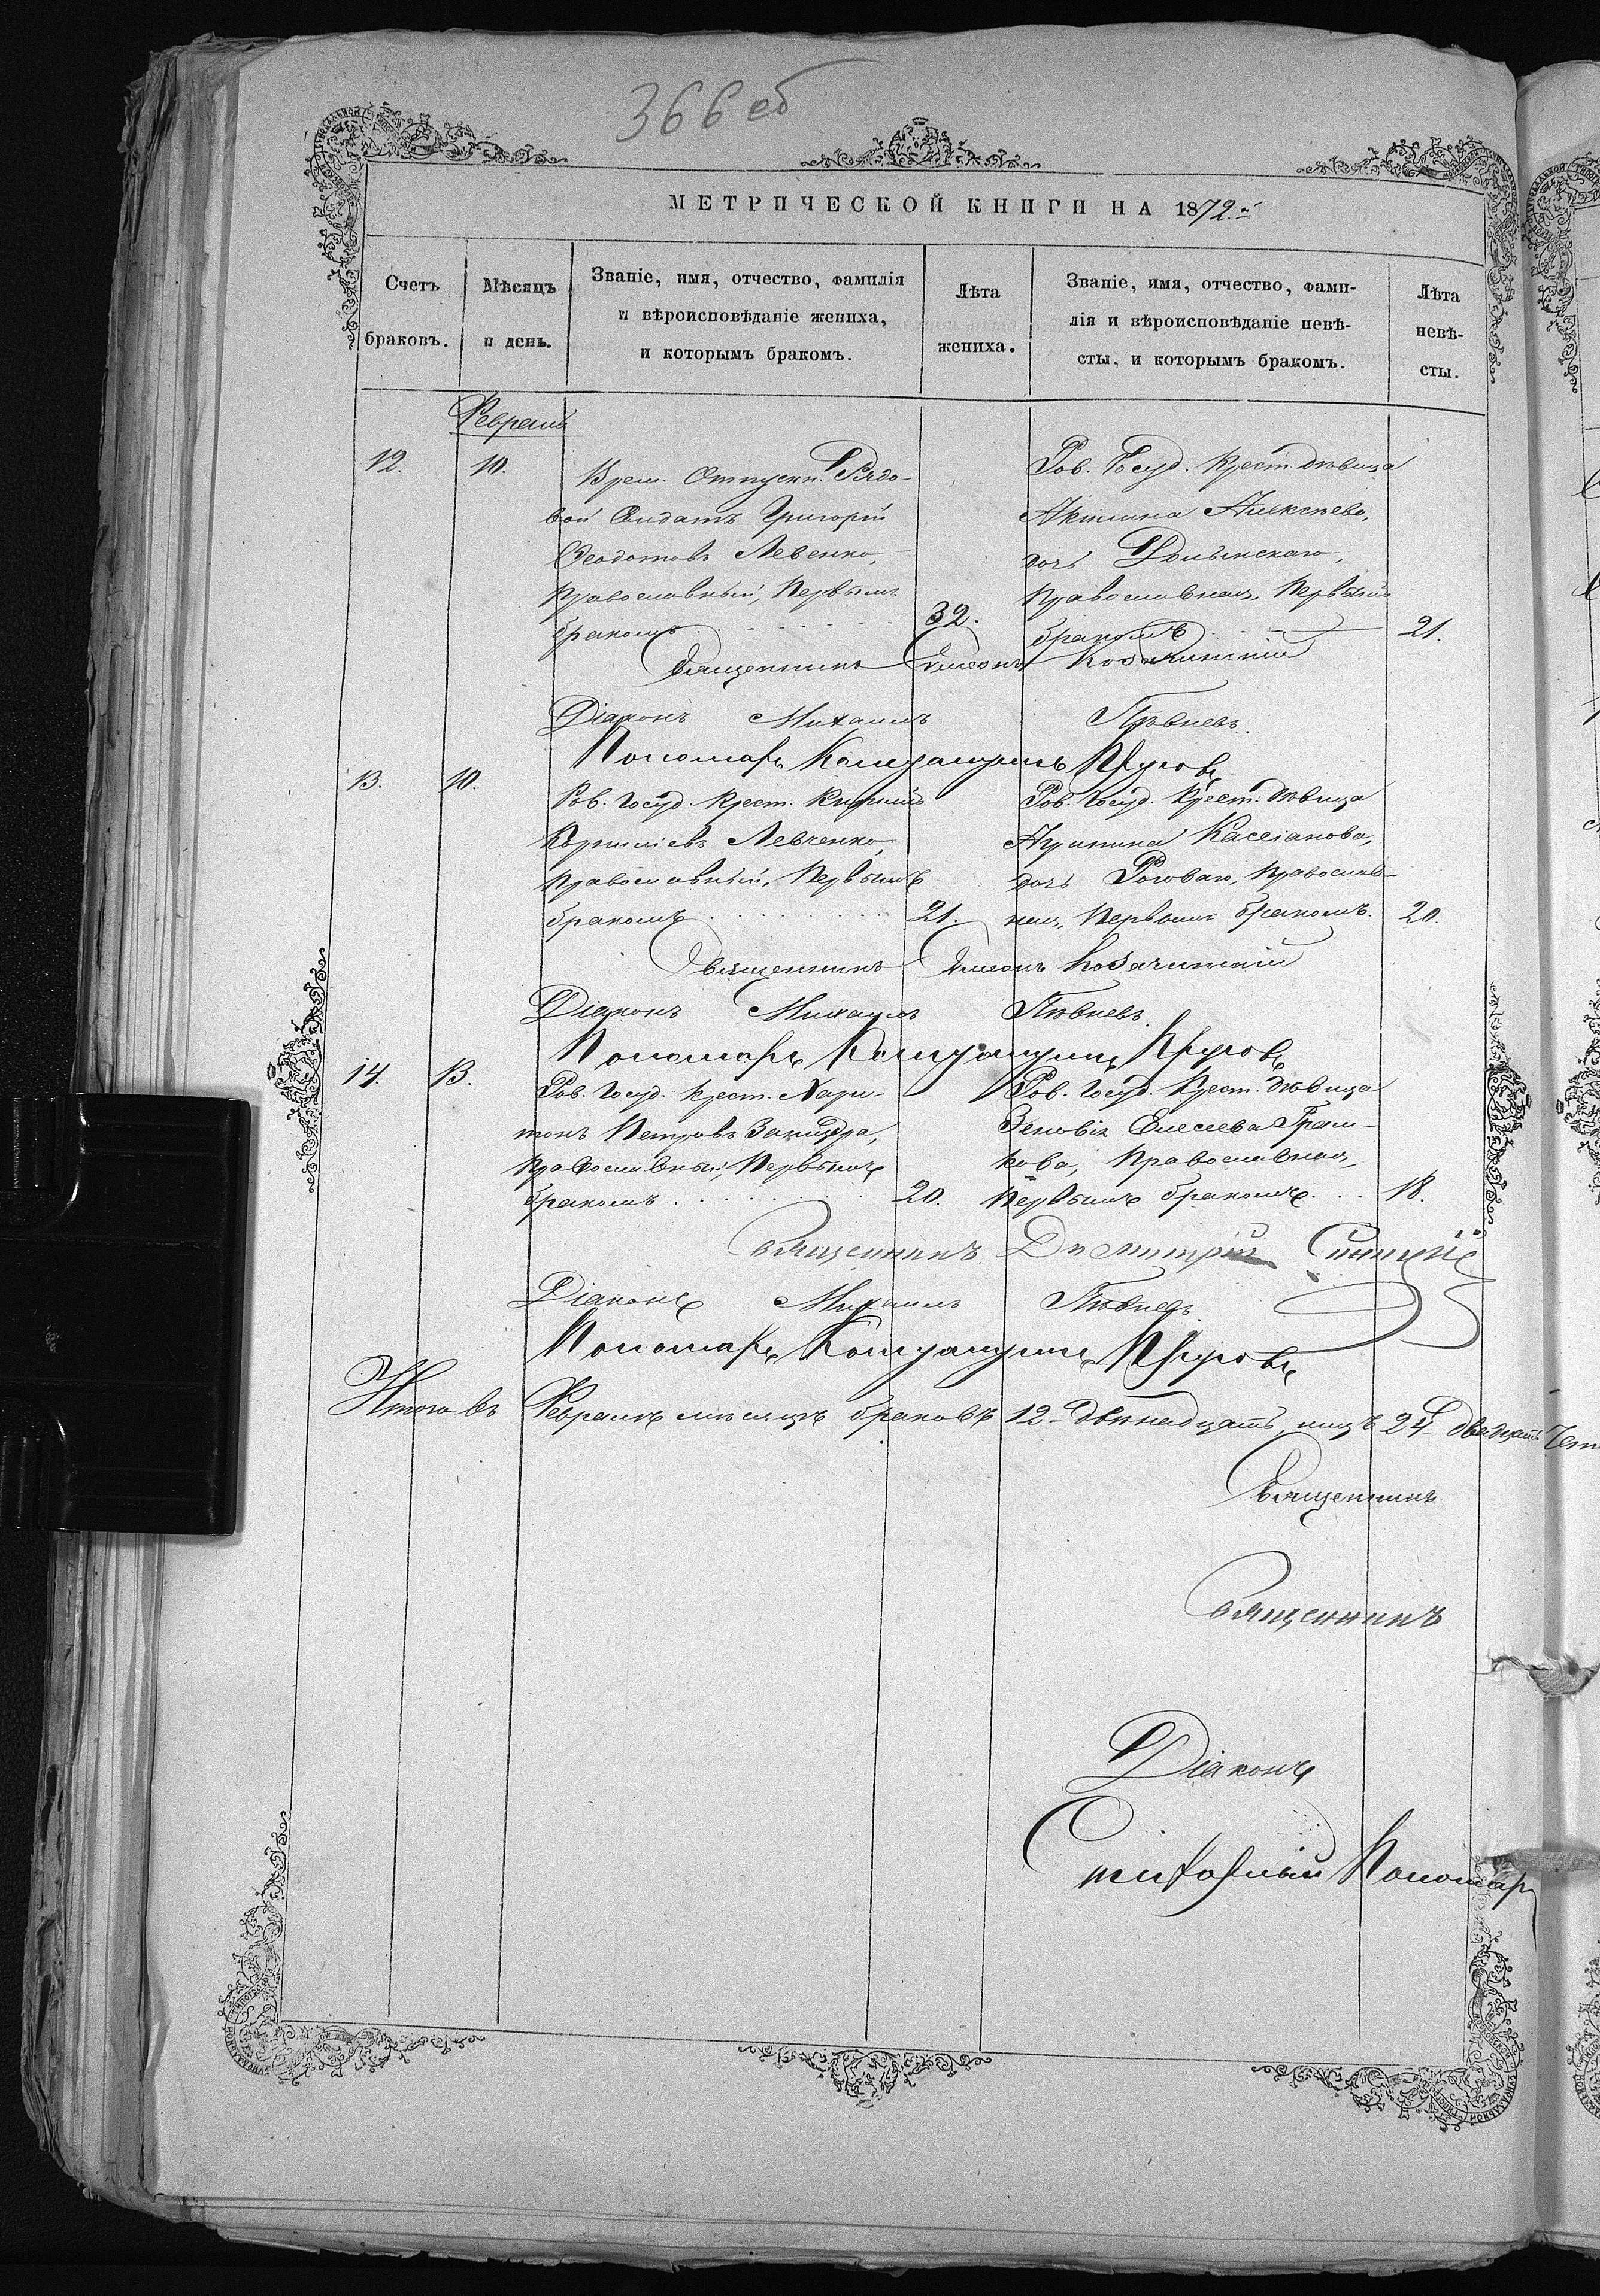 366 об
МЕТРИЧЕСКОЙ КНИГИ НА 1872 й
Счетъ браковъ.
Мѣсяцъ и день.
Званіе, имя, отчество, фамилія
и вѣроисповѣданіе жениха,
и которымъ бракомъ.
Лѣта жениха.
Званіе, имя, отчество, фами-
лія и вѣроисповѣданіе невѣ-
сты, и которымъ бракомъ.
Лѣта невѣ-
сты.
Февраль
12. 10.
Врем. Отпускн. Рядо-
вой Солдатъ Григорій
Ѳеодотовъ Левенко,
Православный, Первымъ
бракомъ 32.
Гос. Крест. дѣвица
Акилина Алексѣева,
дочь
Православная, Первымъ
бракомъ 21.
Священникъ Симеонъ Козачинскій
Діаконъ Михаилъ Пѣвневъ.
Пономарь
13. 10.
Госуд. Крест. Кириллъ
Корниліевъ Левченко,
Православный, Первымъ
бракомъ 21.
Госуд. Крест. дѣвица
Кассіанова,
дочь Роговаго, Православ-
ная, Первымъ бракомъ. 20.
Священникъ Симеонъ Козачинскій
Діаконъ Михаилъ Пѣвневъ.
Пономарь
14. 13.
Госуд. Крест. Хари-
тонъ Петровъ
Православный, Первымъ
бракомъ 20.
Госуд. Крест. дѣвица
Зеновія Елесеева
кова, Православная,
Первымъ бракомъ. 18.
Священникъ Димитрій
Діаконъ Михаилъ Пѣвневъ.
Пономарь
Итого въ Февралѣ мѣсяцѣ браковъ 12 - двѣнадцать, лицъ 24 двадцать
Священникъ
Священникъ
Діаконъ
Пономарь